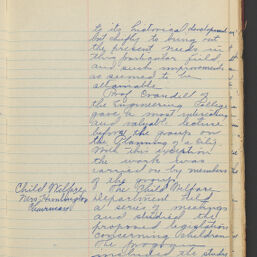 to its historical development
but chiefly to bring out
the present needs in
this particular field
and such improvements
as seemed to be
attainable.
Prof Crandell of
the Engineering College
gave a most interesting
and valuable lecture
before the group on
the Planning of a City.
With this exception
the work was
carried on by members
of the group.
Child Welfare
The Child Welfare
Department held
a series of meetings
and studied the
proposed legislation
concerning children.
The program
included the study